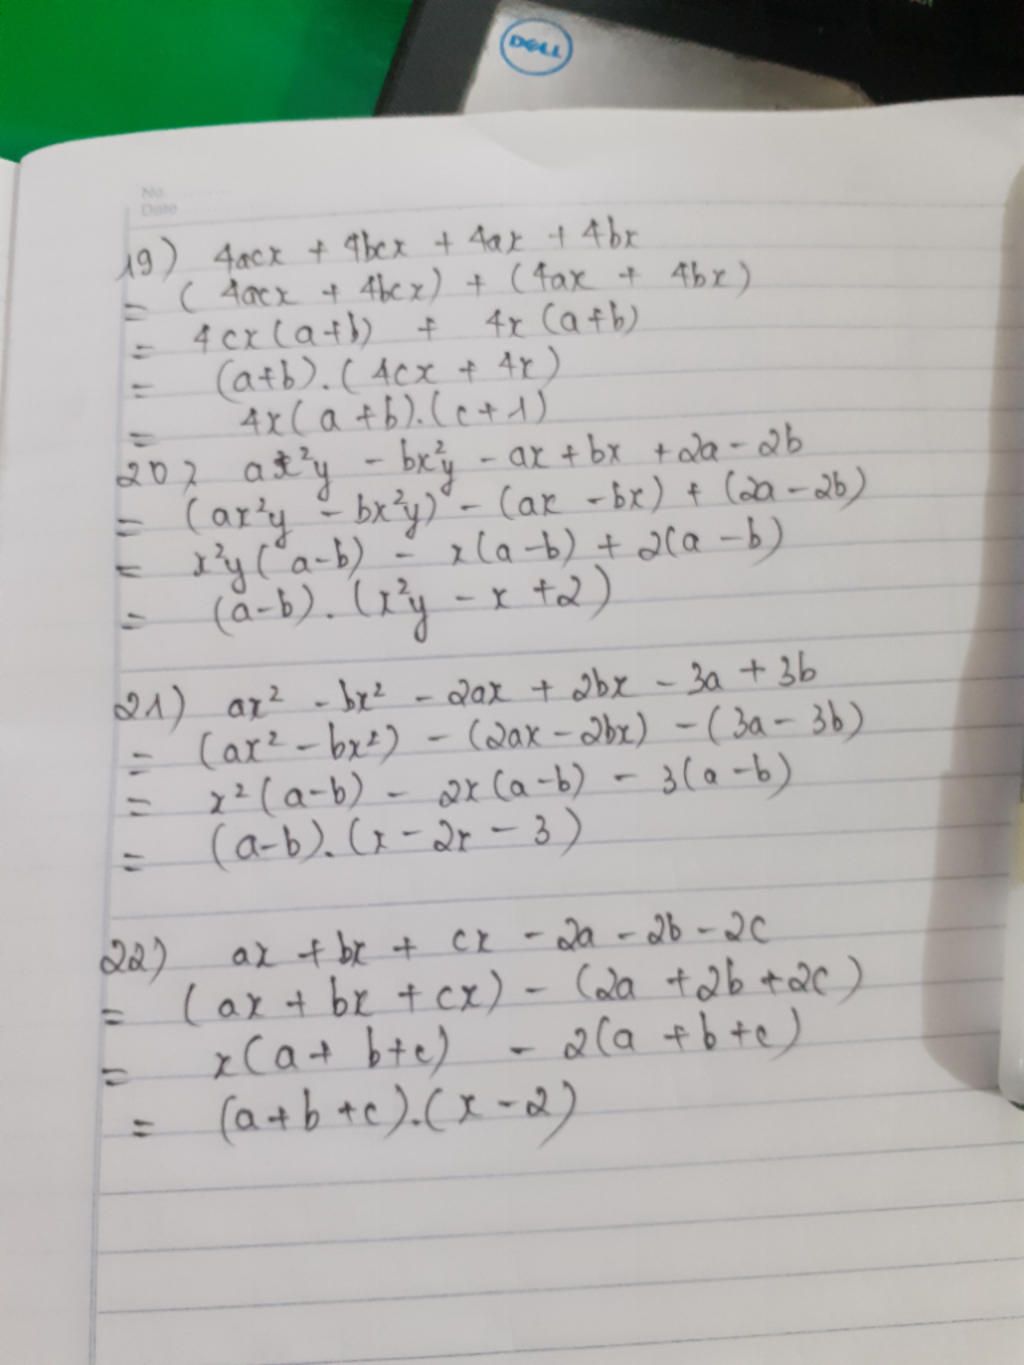 DELL
No.
Date
19) 4acx + 4bcx + 4ax + 4bx
= (4acx + 4bcx) + (4ax + 4bx)
= 4cx(a+b) + 4x(a+b)
= (a+b).(4cx + 4x)
= 4x(a+b).(c+1)
20) ax²y - bx²y - ax + bx + 2a - 2b
= (ax²y - bx²y) - (ax - bx) + (2a - 2b)
= x²y(a-b) - x(a-b) + 2(a-b)
= (a-b).(x²y - x + 2)
21) ax² - bx² - 2ax + 2bx - 3a + 3b
= (ax² - bx²) - (2ax - 2bx) - (3a - 3b)
= x²(a-b) - 2x(a-b) - 3(a-b)
= (a-b).(x - 2x - 3)
22) ax + bx + cx - 2a - 2b - 2c
= (ax + bx + cx) - (2a + 2b + 2c)
= x(a + b + c) - 2(a + b + c)
= (a + b + c).(x - 2)